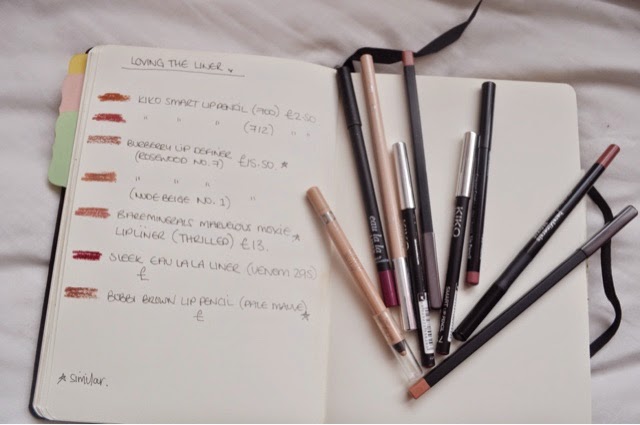 LOVING THE LINER
KIKO SMART LIP PENCIL (700) £2.50
" " " (712) " "
BURBERRY LIP DEFINER
(ROSEWOOD NO. 7) £15.50. *
" " "
(NUDE BEIGE NO. 1)
BAREMINERALS MARVELOUS MOXIE
LIPLINER (THRILLED) £13. *
SLEEK EAU LA LA LINER (VENOM 295)
£
BOBBI BROWN LIP PENCIL (PALE MAUVE)
£ *
* similar.
eau la la
KIKO
bareMinerals